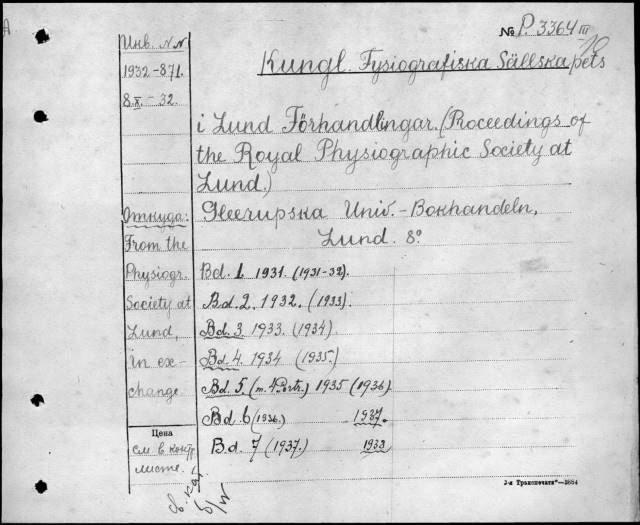 № P. 3364 III/10
Инв. №№
1932-871.
8.X.-32.
Kungl. Fysiografiska Sällskapets
i Lund Förhandlingar. (Proceedings of
the Royal Physiographic Society at
Lund.)
Откуда:
From the
Physiogr.
Society at
Lund,
in ex-
change.
Gleerupska Univ.-Bokhandeln,
Lund. 8º
Bd. 1. 1931. (1931-32).
Bd. 2. 1932. (1933).
Bd. 3. 1933. (1934).
Bd. 4. 1934 (1935.)
Bd. 5. (m. 4 Portr.) 1935 (1936)
Bd. 6 (1936.) 1937.
Bd. 7 (1937.) 1938
Цена
см. в контр.
листе.
св. кат.
3-я Транспечати"—2854